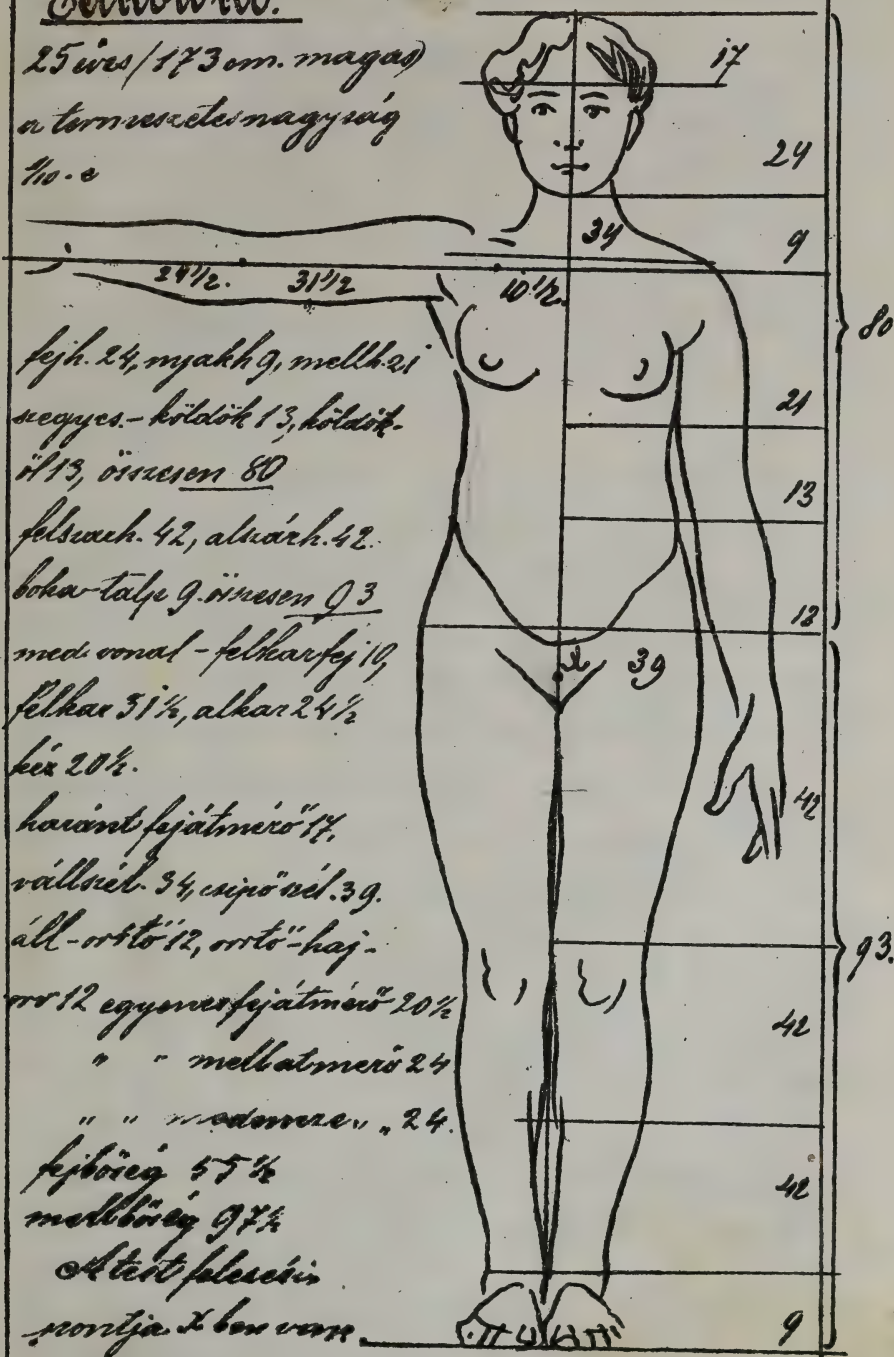 25 éves (173 cm. magas)
a termeszetes nagyság
1/10 - e
17
24
34
9
24 1/2.
31 1/2
10 1/2.
80
fejh. 24, nyakh 9, mellh. 21
21
szegycs. - köldök 13, köldök-
öl 13, összesen 80
13
felszárh. 42, alszárh. 42.
boka-talp 9. összesen 93
12
med. vonal - felkarfej 10,
x 39
felkar 31 1/2, alkar 24 1/2
kéz 20 1/2.
42
haránt fejátmérő 17.
vállszél. 34, csipőszél. 39.
áll - orrtő 12, orrtő - haj-
93.
12 egyenes fejátmérő 20 1/2
42
" " mellátmerő 24
" " medencze " " 24.
fejbőség 55 1/2
42
mellbőség 97 1/2
A test felezési
pontja x ben van.
9